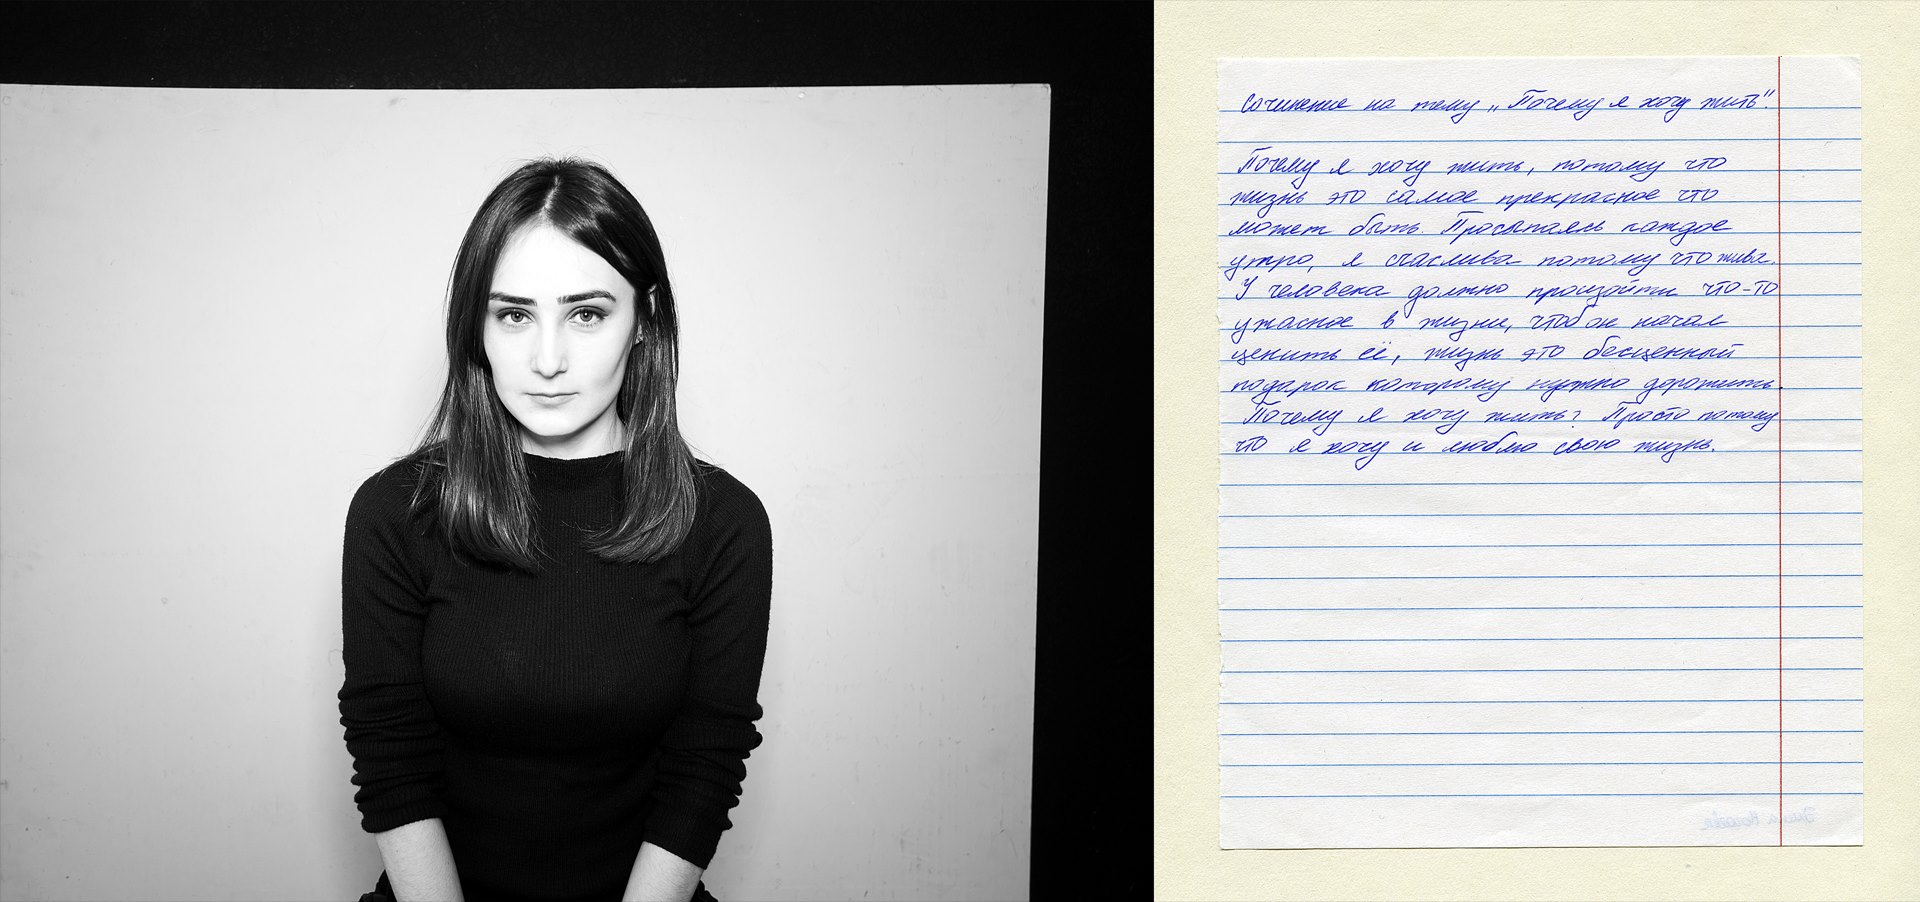 Сочинение на тему „Почему я хочу жить".
Почему я хочу жить, потому что
жизнь это самое прекрасное что
может быть. Просыпаясь каждое
утро, я счаслива потому что жива.
У человека должно произойти что-то
ужасное в жизни, чтоб он начал
ценить её, жизнь это бесценный
подарок которому нужно дорожить.
Почему я хочу жить? Просто потому
что я хочу и люблю свою жизнь.